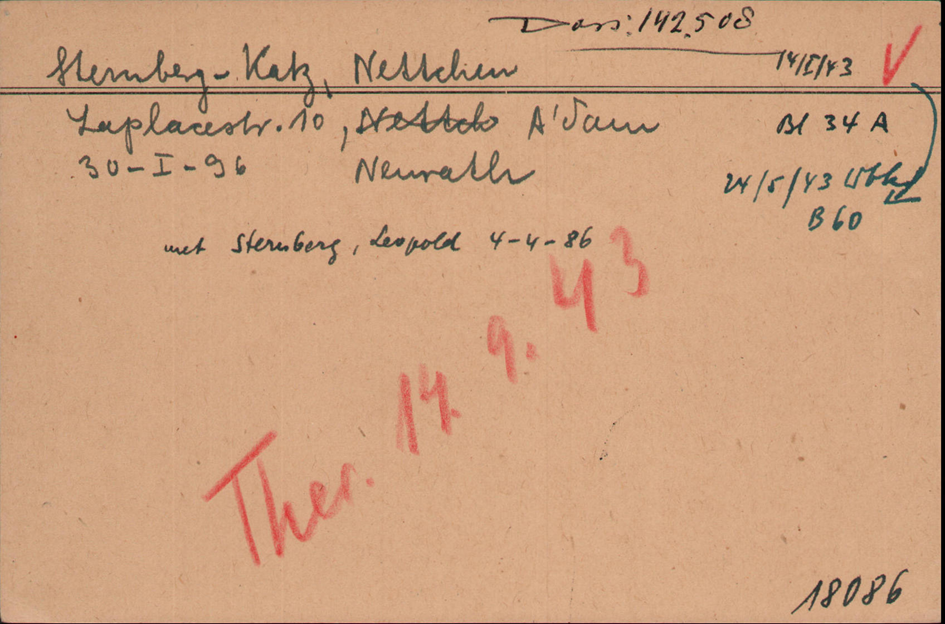 Doss: 142.508
Sternberg-Katz, Nettchen 14/I/43 V
Laplacestr. 10, Nettch A'dam Bl 34 A
30-I-96 Neurath 24/5/43 Wbk
B 60
met Sternberg, Leopold 4-4-86
Ther. 14. 9. 43
18086